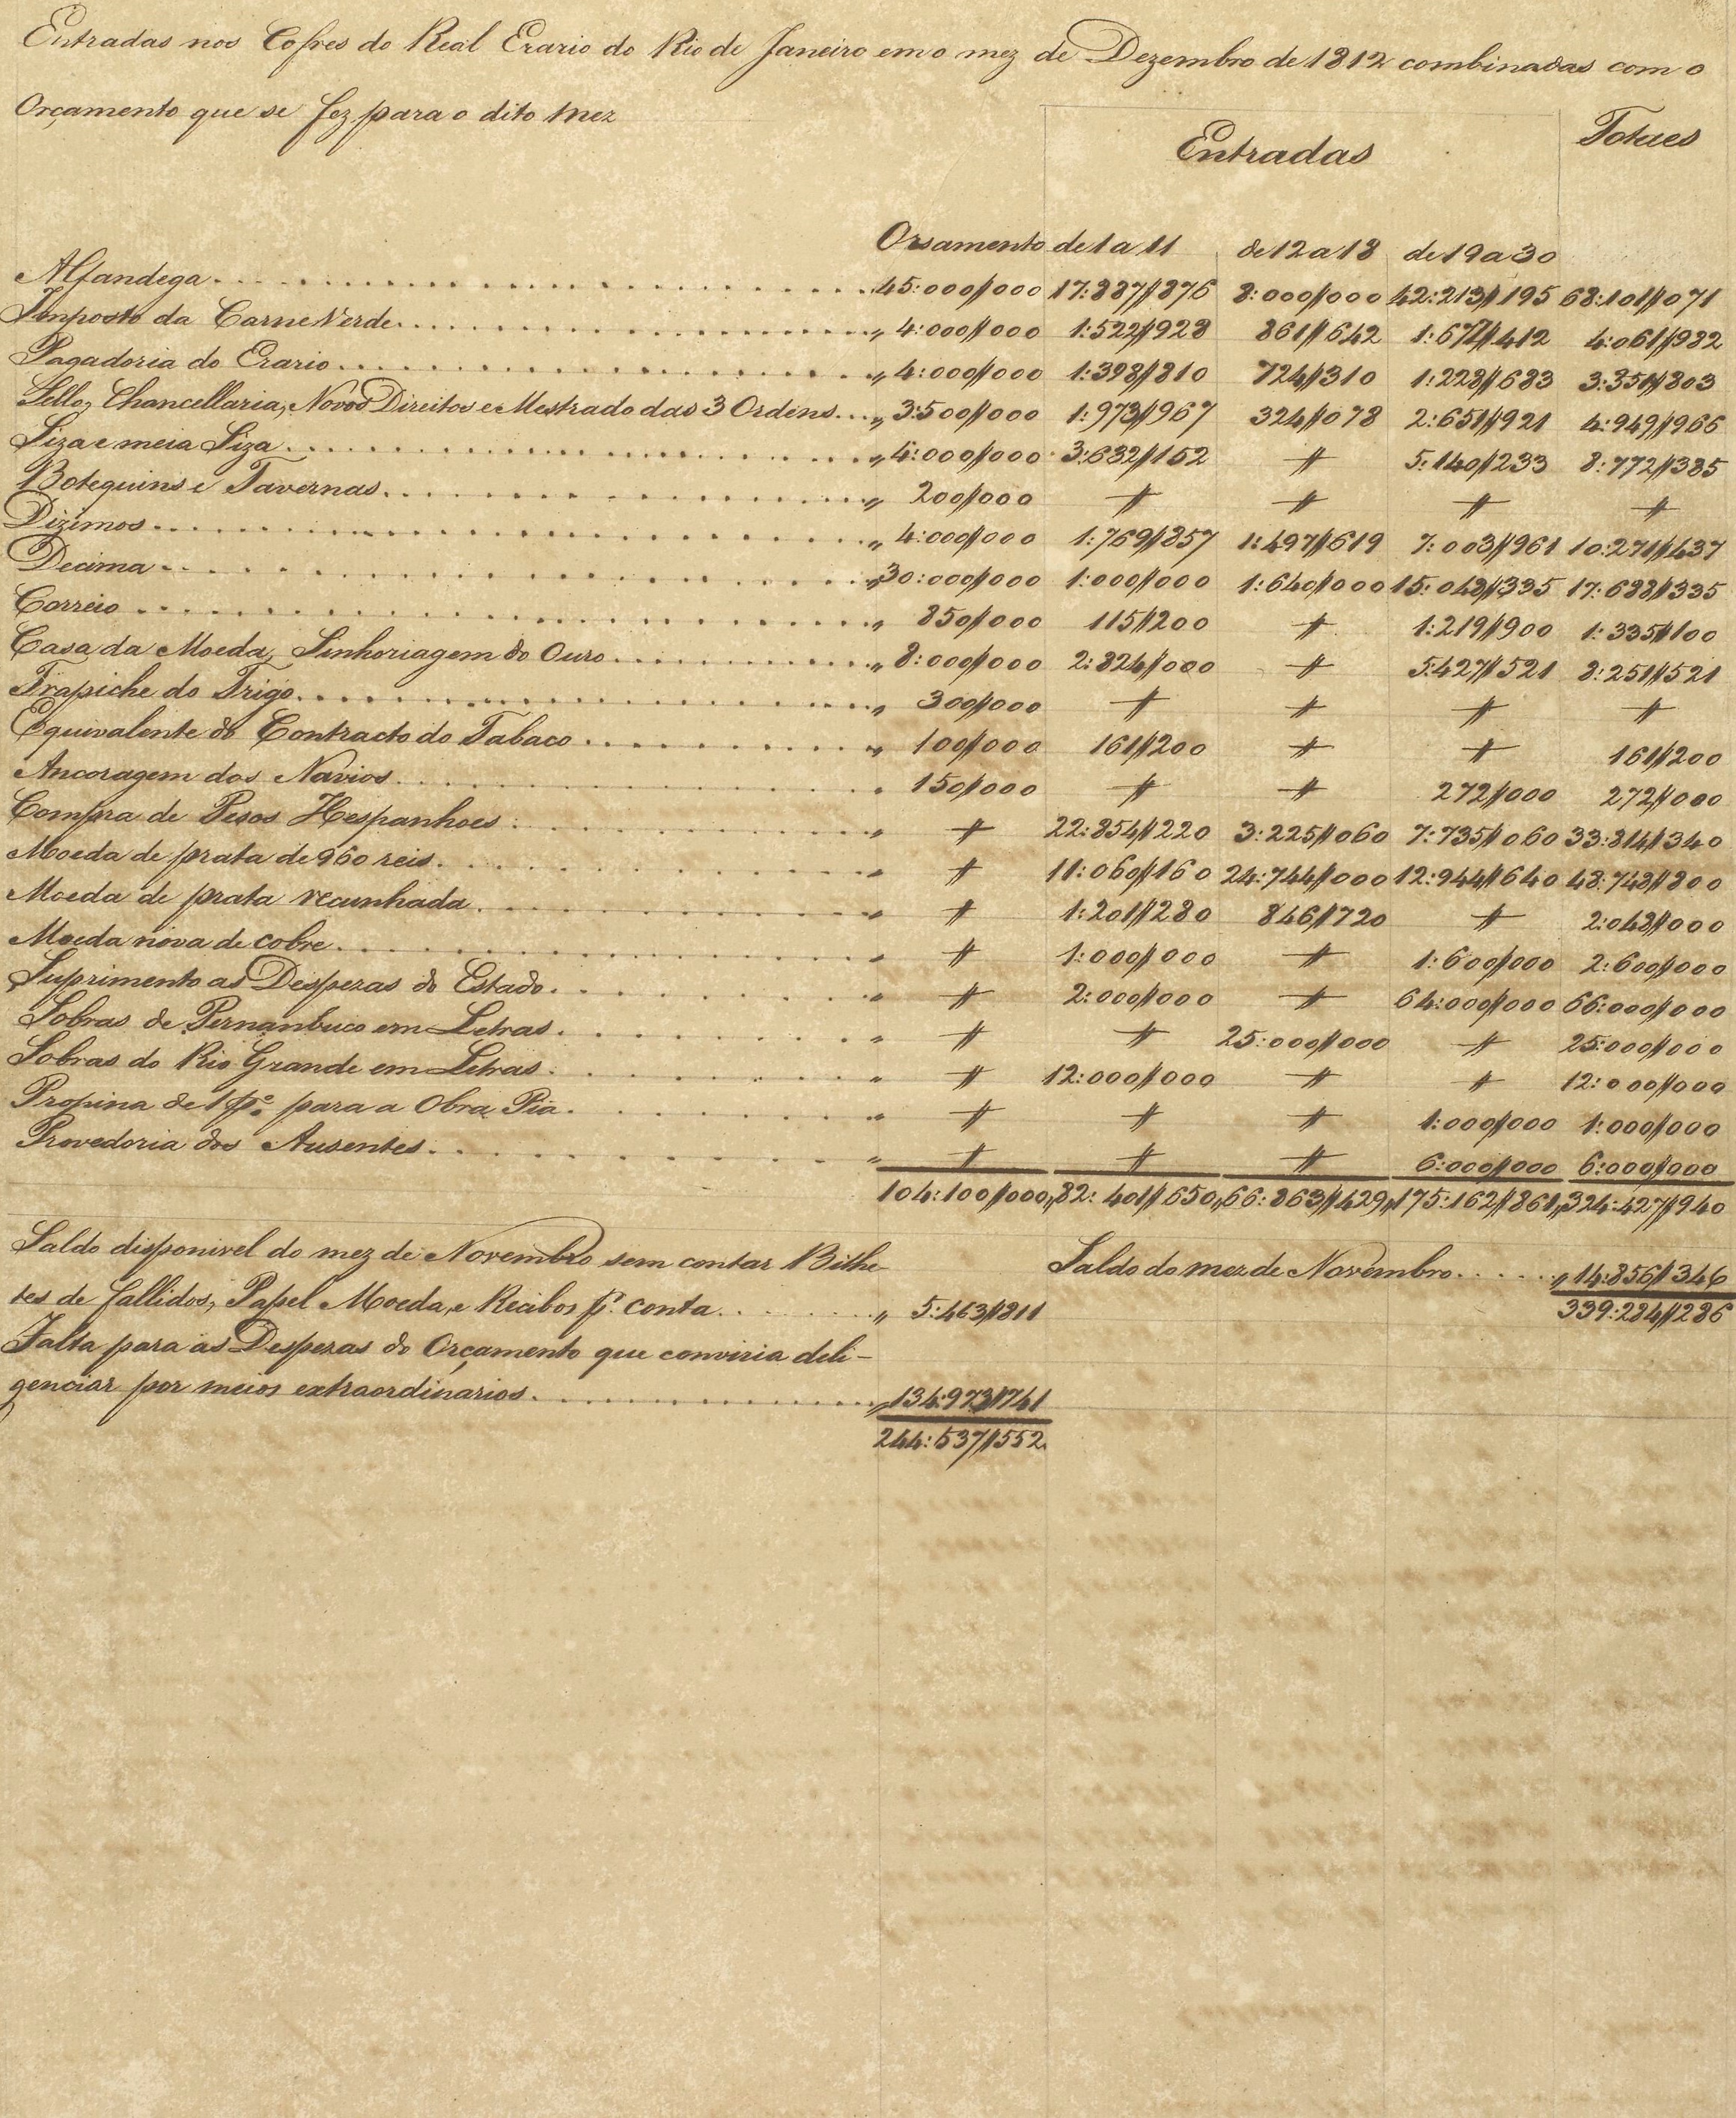 Entradas nos Cofres do Real Erario do Rio de Janeiro em o mez de Dezembro de 1812 combinadas com o
Orçamento que se fez para o dito mez
Entradas Totaes
Orsamento de 1 a 11 de 12 a 18 de 19 a 30
Alfandega 45:000//000 17:887//876 8:000//000 42:213//195 68:101//071
Imposto da Carne Verde „ 4:000//000 1:522//928 861//642 1:677//412 4:061//982
Pagadoria do Erario „ 4:000//000 1:398//810 724//310 1:228//683 3:351//803
Sello, Chancellaria, Novos Direitos e Mestrado das 3 Ordens „ 3:500//000 1:973//967 324//078 2:651//921 4:949//966
Siza e meia Siza „ 4:000//000 3:632//152 // 5:140//233 8:772//385
Botequins e Tavernas „ 200//000 // // // //
Dizimos „ 4:000//000 1:769//857 1:497//619 7:003//961 10:271//437
Decima „ 30:000//000 1:000//000 1:640//000 15:048//335 17:688//335
Correio „ 850//000 115//200 // 1:219//900 1:335//100
Casa da Moeda, Sinhoriagem do Ouro „ 8:000//000 2:824//000 // 5:427//521 8:251//521
Trapiche do Trigo „ 300//000 // // // //
Equivalente do Contracto do Tabaco „ 100//000 161//200 // // 161//200
Ancoragem dos Navios „ 150//000 // // 272//000 272//000
Compra de Pesos Hespanhoes „ // 22:854//220 3:225//060 7:735//060 33:814//340
Moeda de prata de 960 reis „ // 11:060//160 24:744//000 12:944//640 48:748//800
Moeda de prata recunhada „ // 1:201//280 846//720 // 2:048//000
Moeda nova de cobre „ // 1:000//000 // 1:600//000 2:600//000
Suprimento as Despezas do Estado „ // 2:000//000 // 64:000//000 66:000//000
Sobras de Pernanbuco em Letras „ // // 25:000//000 // 25:000//000
Sobras do Rio Grande em Letras „ // 12:000//000 // // 12:000//000
Propina de 1 p.º para a Obra Pia „ // // // 1:000//000 1:000//000
Provedoria dos Ausentes „ // // // 6:000//000 6:000//000
104:100//000 „ 82:401//650 „ 66:863//429 „ 175:162//861 „ 324:427//940
Saldo disponivel do mez de Novembro sem contar Bilhe-
tes de fallidos, Papel Moeda, e Recibos p.r conta „ 5:463//811
Saldo do mez de Novembro „ 14:856//346
339:284//286
Falta para as Despezas do Orçamento que conviria deli-
genciar por meios extraordinarios „ 134:973//741
244:537//552